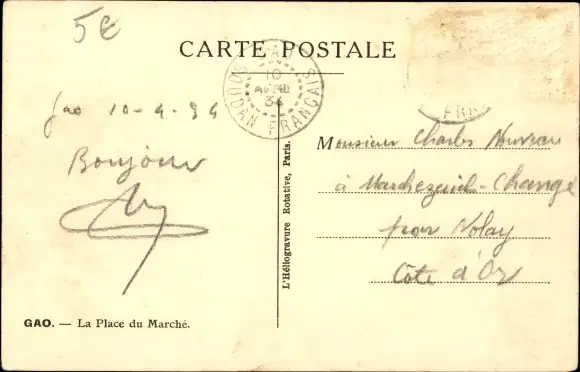 5€
CARTE POSTALE
GAO
10
AVRIL
34
SOUDAN FRANÇAIS
FRAN
Gao 10-4-34
Bonjour
Monsieur Charles Nouveau
à Marcheseuil-Change
par Nolay
Côte d'Or
L'Héliogravure Rotative, Paris.
GAO. — La Place du Marché.